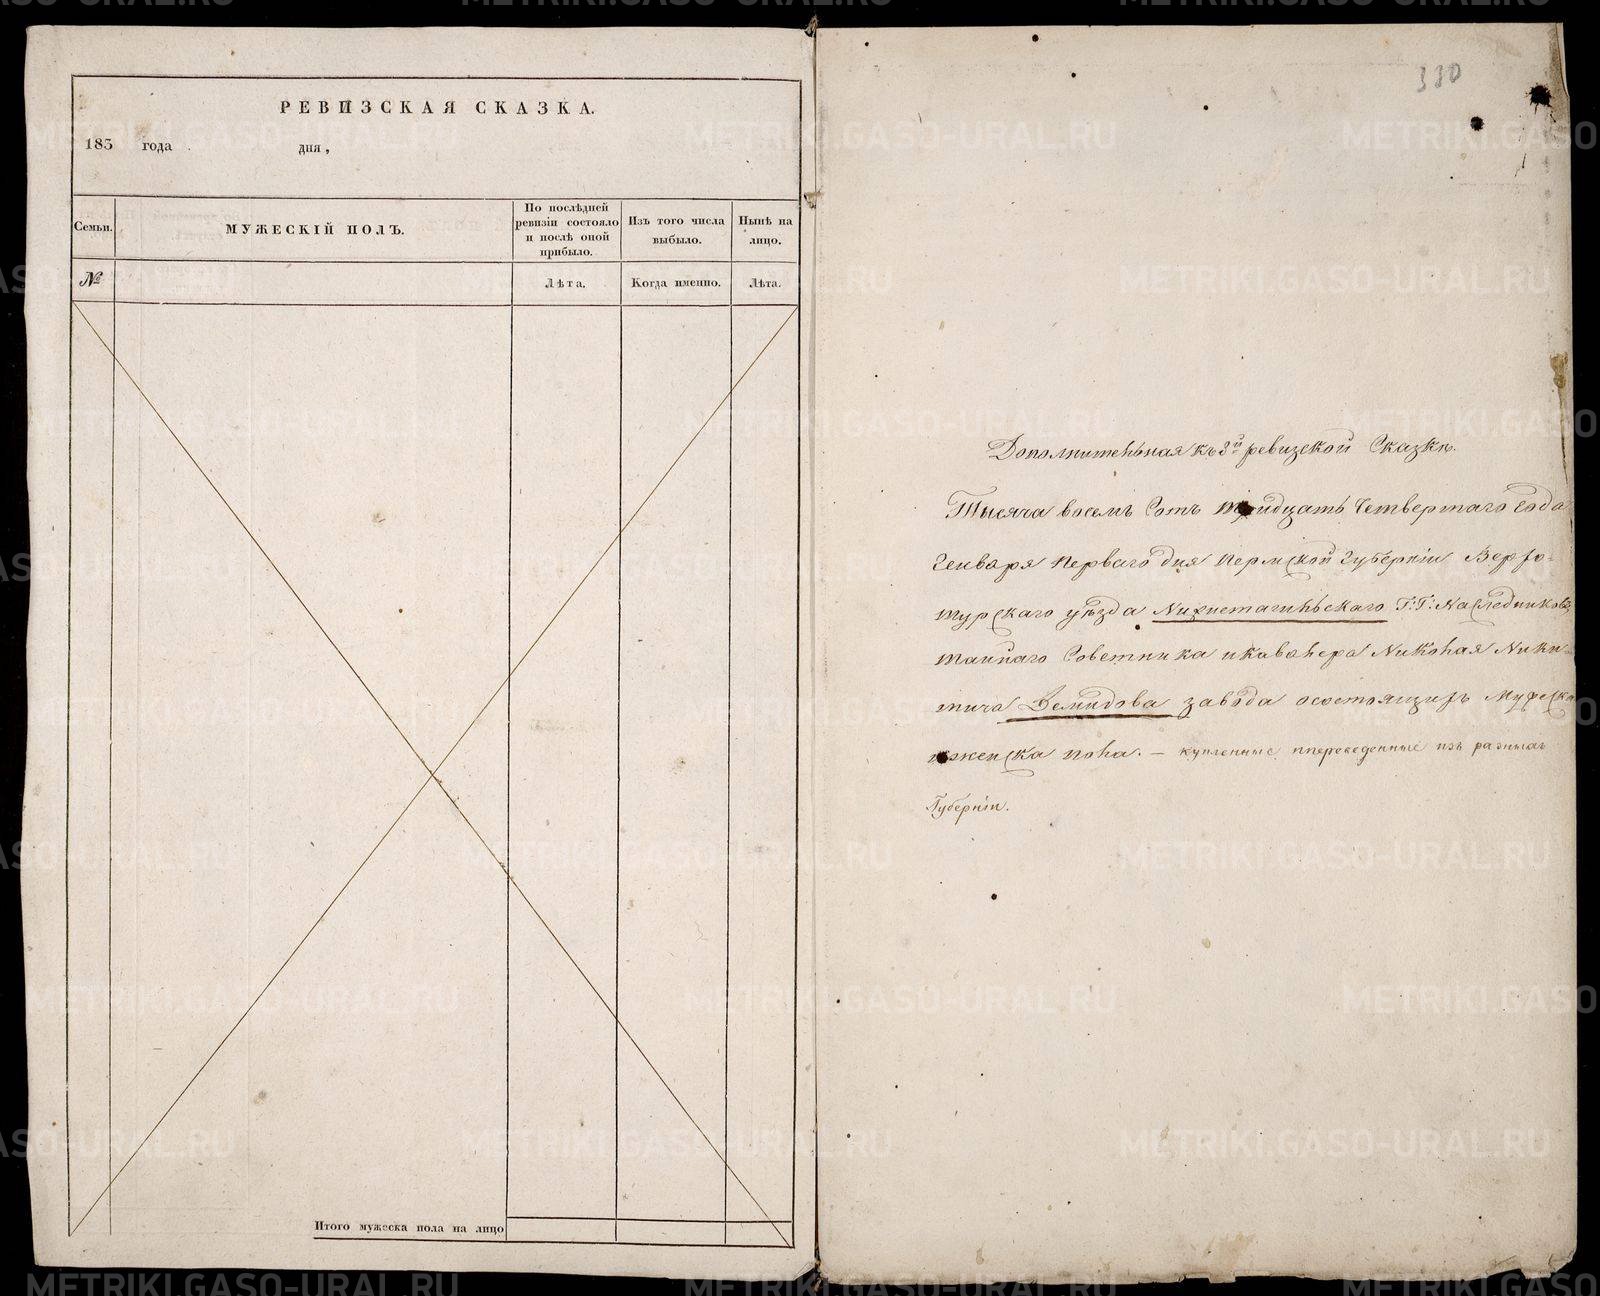 РЕВИЗСКАЯ СКАЗКА.
183 года дня,
Семьи.
МУЖЕСКІЙ ПОЛЪ.
По послѣдней ревизіи состояло и послѣ оной прибыло.
Изъ того числа выбыло.
Нынѣ на лицо.
№
Лѣта.
Когда именно.
Лѣта.
Итого мужеска пола на лицо
330
Дополнительная къ 8й ревизской Сказкѣ.
Тысяча восемъ Сотъ тридцать Четвертаго Года
Генваря перваго дня Пермской Губерніи Верхо-
турскаго уѣзда Нижнетагильскаго Г:Г: Наследниковъ
тайнаго Советника и кавалера Николая Ники-
тича Демидова завода о состоящихъ Мужеска
и женска пола. — купленные и переведенные изъ разныхъ
Губерніи.
METRIKI.GASO-URAL.RU